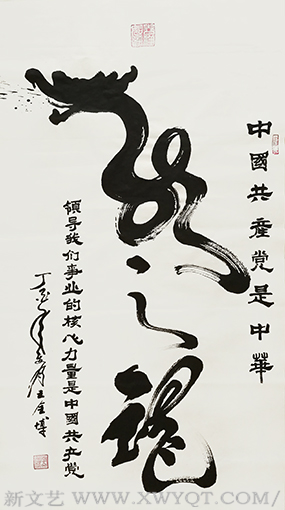 中國共產党是中華
龍之魂
領导我们事业的核心力量是中國共产党
新文艺 <WWW.XWYQT.COM/>